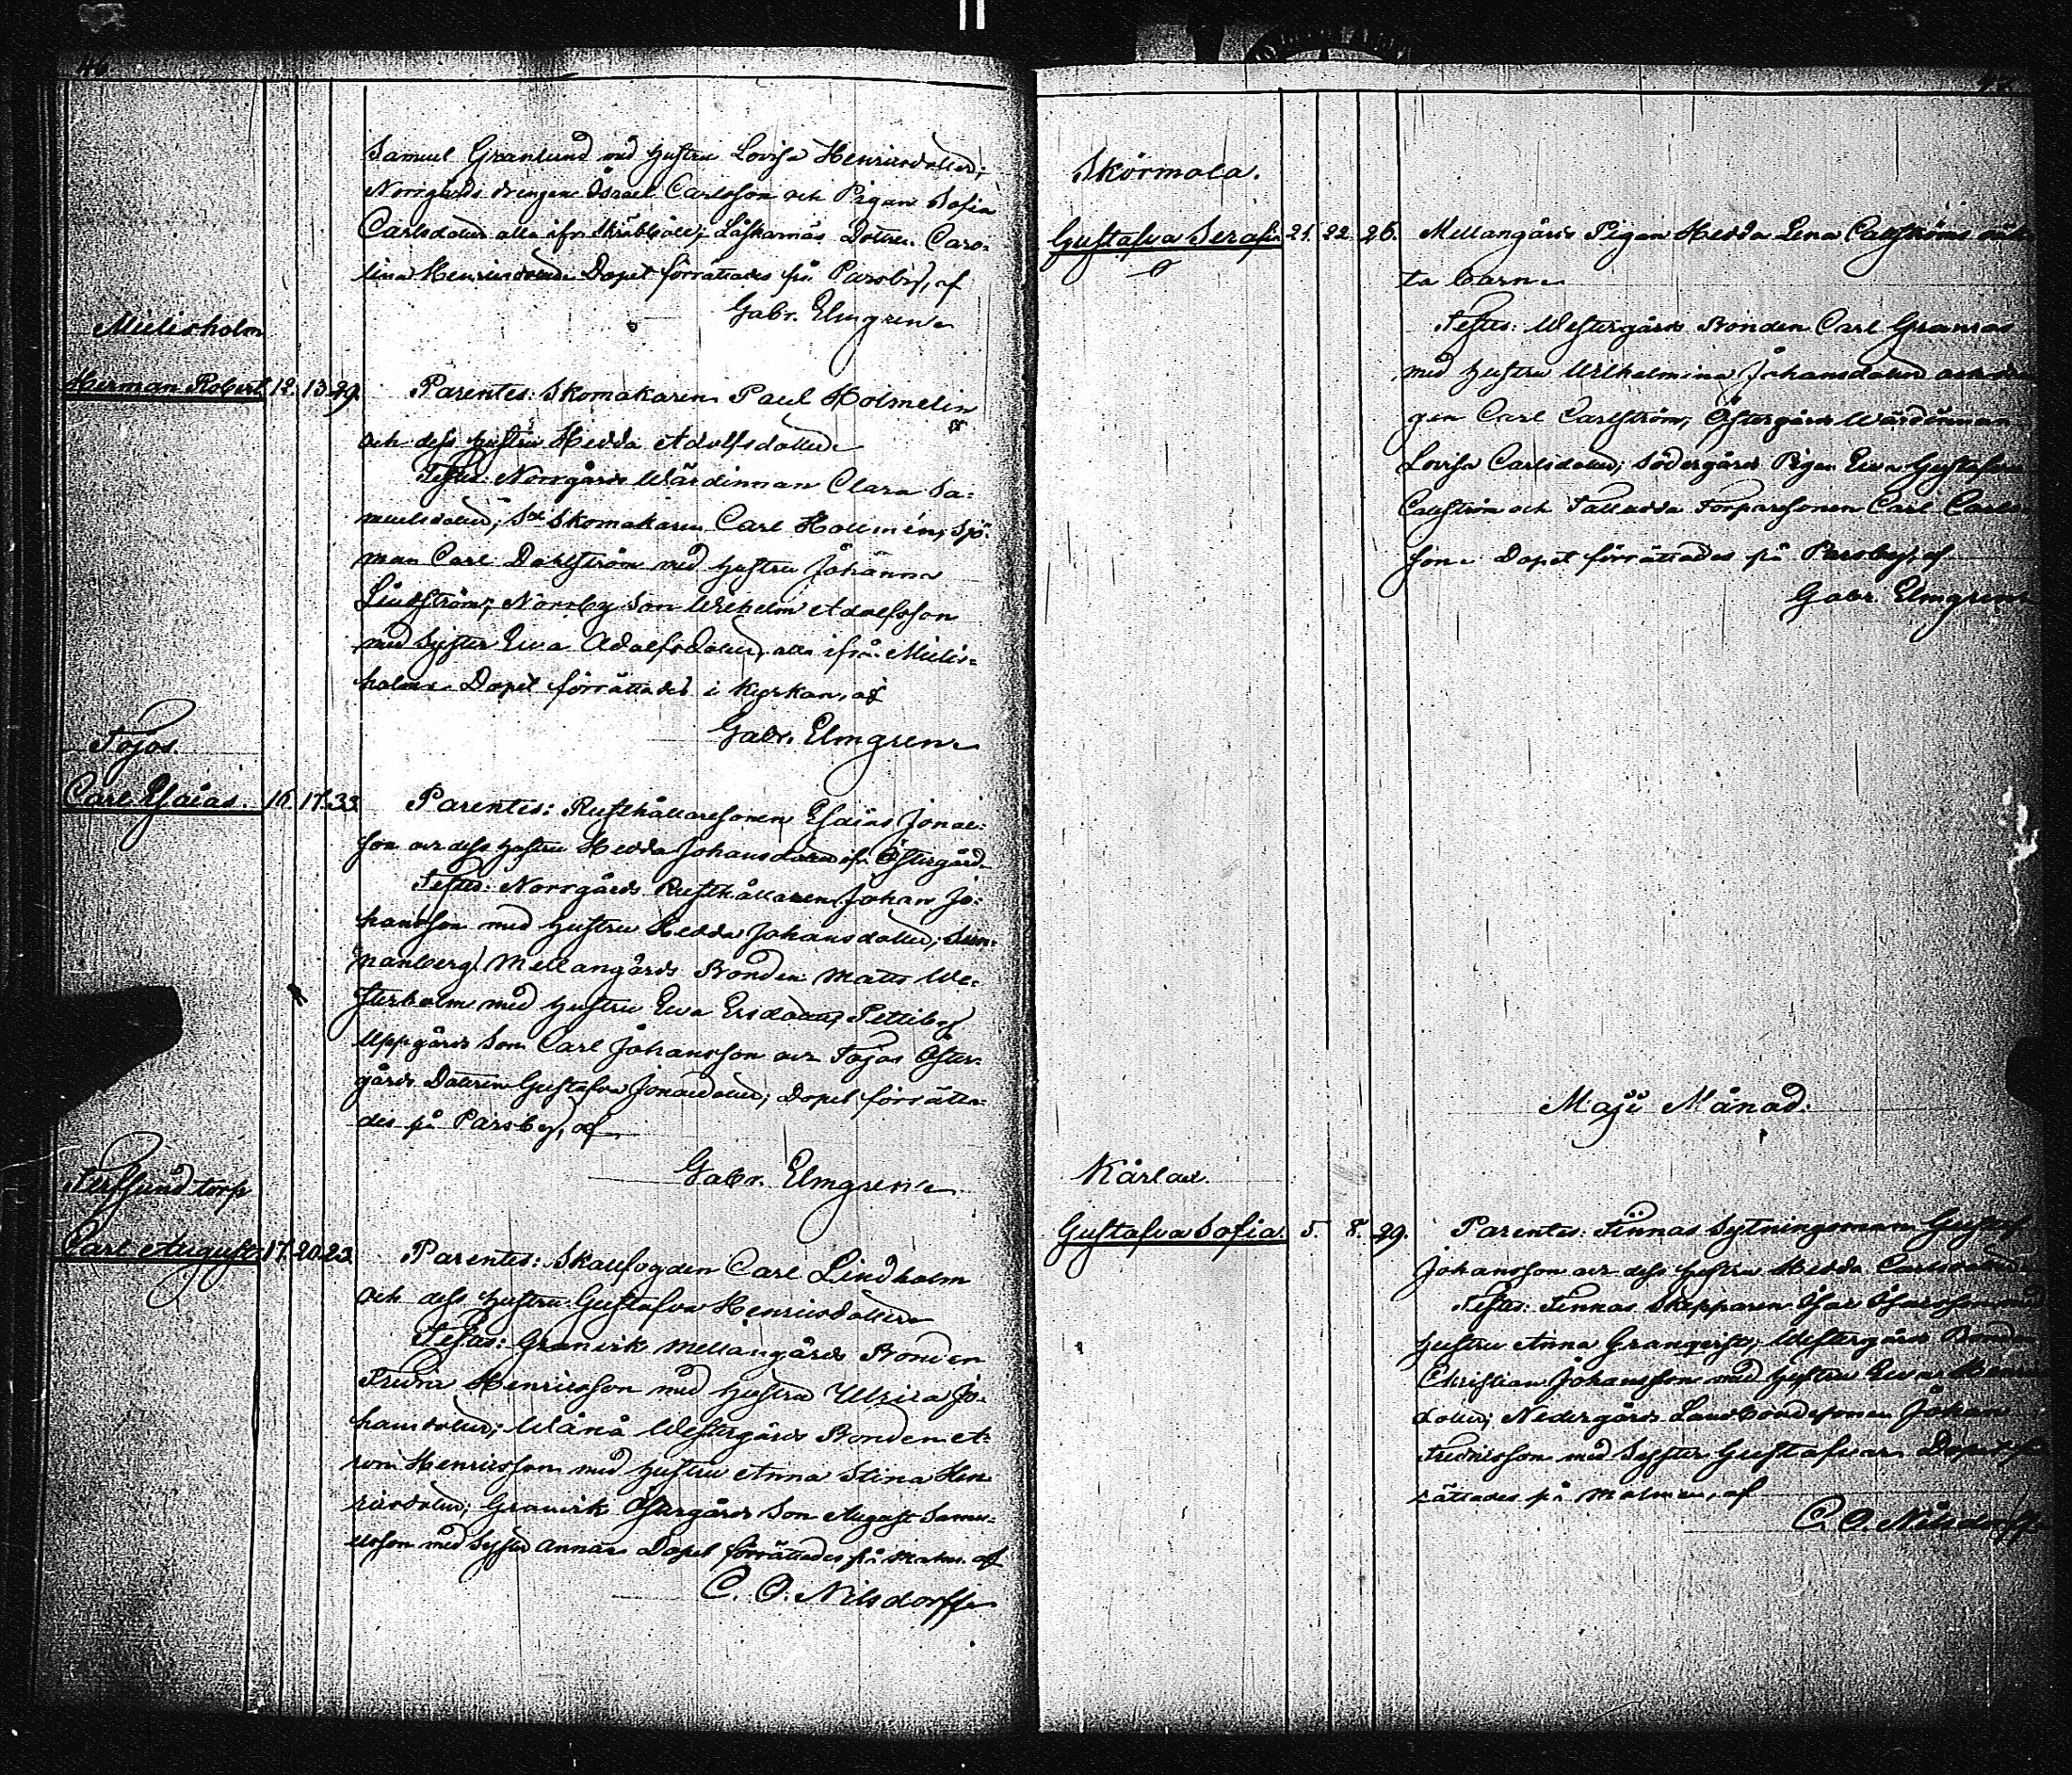 46
Samuel Granlund med hustru Lovisa Henricsdotter;
Norrgårds drengen Israel Carlsson och Pigan Sofia
Carlsdotter alla ifr. Skräbböle; Låskarnäs Dottren Caro-
lina Henricsdotter. Dopet förrättades på Parsby, af
Gabr. Elmgren.
Mielisholm
Herman Robert. 12. 13. 29. Parentes: Skomakaren Paul Holmelin
och dess hustru Hedda Adolfsdotter
Testes: Norrgårds Wärdinnan Clara Sa-
muelsdotter; Skomakaren Carl Hollmén; Sjö-
man Carl Dahlström med hustru Johanna
Lindström; Norrby Son Wilhelm Adolfsson
med Syster Ewa Adolfsdotter, alla ifrån Mielis-
holm. Dopet förrättades i Kyrkan, af
Gabr. Elmgren.
Tojos.
Carl Esaias. 16. 17. 33. Parentes: Rusthållaresonen Esaias Jonas-
son och dess hustru Hedda Johansdotter ifr. Östergård.
Testes: Norrgårds Rusthållaren Johan Jo-
hansson med hustru Hedda Johansdotter; Sun-
nanberg Mellangårds Bonden Matts We-
sterholm med hustru Ewa Ersdotter; Pettiby
Uppgårds Son Carl Johansson och Tojos Öster-
gårds Dottren Gustafva Jonasdotter; Dopet förrätta-
des på Parsby, af
Gabr. Elmgren.
torp
Carl August. 17. 20. 23. Parentes: Skallfogden Carl Lindholm
och dess hustru Gustafva Henricsdotter
Testes: Granvik Mellangårds Bonden
Fredric Henricsson med hustru Ulrica Jo-
hansdotter; Wånå Westergårds Bonden A-
ron Henricsson med hustru Anna Stina Hen-
ricsdotter; Granvik Östergårds Son August Samu-
elsson med Syster Anna. Dopet förrättades på Malm. af
C. O. Nilsdorff.
47.
Skörmola.
Gustafva Serafi- 21. 22. 26. Mellangårds Pigan Hedda Lena Callströms oäk-
ta barn.
Testes: Westergårds Bonden Carl Granroos
med hustru Wilhelmina Johansdotter och
gen Carl Carlström; Östergårds Wärdinnan
Lovisa Carlsdotter; Södergårds Pigan Ewa Gustafva
Callström och Torparesonen Carl Carls-
son. Dopet förrättades på Parsby, af
Gabr. Elmgren.
Maji Månad.
Kårlax.
Gustafva Sofia. 5. 8. 29. Parentes: Finnas Sytningsman Gustaf
Johansson och dess hustru Hedda Carlsdotter
Testes: Finnas Skepparen Isac Isacsson med
hustru Anna Granqvist; Westergårds Bonden
Christian Johansson med hustru Ewa
dotter; Nedergårds Landbondesonen Johan
Fredricsson med Syster Gustafva. Dopet f
rättades på Malmen, af
C. O. Nilsdorff